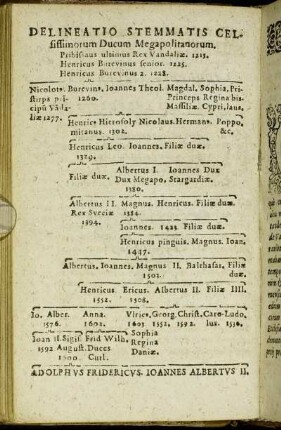 DELINEATIO STEMMATIS CEL-
sissimorum Ducum Megapolitanorum.
Pribislaus ultimus Rex Vandaliæ. 1215.
Henricus Burevinus senior. 1225.
Henricus Burevinus 2. 1228.
Nicolot9. Burevin9, Ioannes Theol. Magdal, Sophia, Pri-
stirps pri- 1260. Princeps Regina bis-
cipū Vāda- Massiliæ. Cypri, lana,
liæ 1277. Henric9 Hierosoly Nicolaus. Herman9. Poppo,
mitanus. 1302. &c.
Henricus Leo. Ioannes. Filiæ duæ.
1329.
Albertus I. Ioannes Dux
Filiæ duæ, Dux Megapo, Stargardiæ.
1380.
Albertus II. Magnus. Henricus. Filiæ duæ.
Rex Sveciæ 1384.
1394. Ioannes. 1423 Filiæ duæ.
Henricus pinguis. Magnus. Ioan,
1477.
Albertus, Ioannes, Magnus II, Balthasar, Filiæ
1503. duæ.
Henricus. Ericus. Albertus II. Filiæ IIII.
1552. 1508.
Io. Alber. Anna. Vlric9, Georg. Christ. Caro-Ludo,
1576. 1602. 1603 1552, 1592. lus. 1556,
Ioan II. Sigis. Frid Wilh, Sophia
1592 August. Duces Regina
Curl. Daniæ.
ADOLPHVS FRIDERICVS. IOANNES ALBERTVS II.